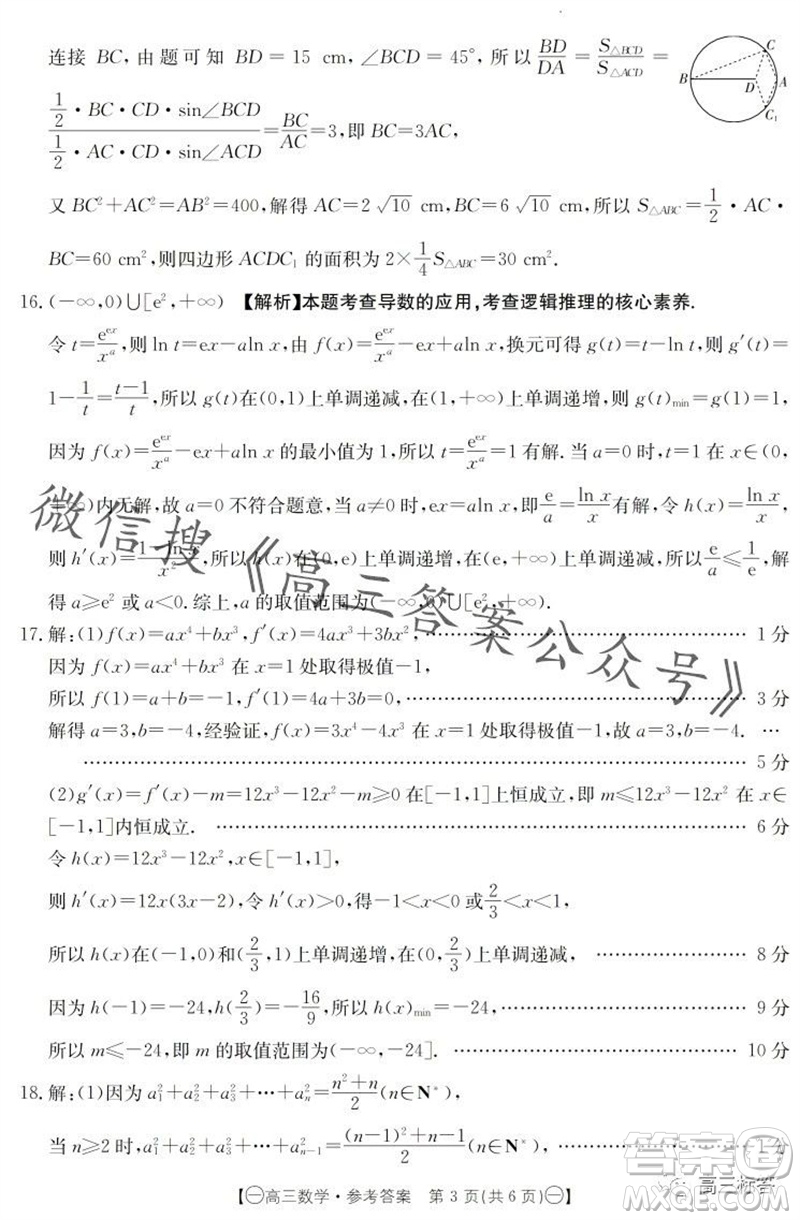 连接 BC, 由题可知 BD = 15 cm, ∠BCD = 45°, 所以 BD/DA = S△BCD/S△ACD =
(1/2 · BC · CD · sin∠BCD)/(1/2 · AC · CD · sin∠ACD) = BC/AC = 3, 即 BC=3AC,
B D A C C₁
又 BC²+AC²=AB²=400, 解得 AC=2√10 cm, BC=6√10 cm, 所以 S△ABC=1/2 · AC ·
BC=60 cm², 则四边形 ACDC₁ 的面积为 2×1/4 S△ABC=30 cm².
16. (−∞,0)∪[e²,+∞) 【解析】本题考查导数的应用,考查逻辑推理的核心素养.
令 t=e^(ex)/x^a, 则 ln t=ex−aln x, 由 f(x)=e^(ex)/x^a−ex+aln x, 换元可得 g(t)=t−ln t, 则 g′(t)=
1−1/t=(t−1)/t, 所以 g(t)在(0,1)上单调递减,在(1,+∞)上单调递增,则 g(t)min=g(1)=1.
因为 f(x)=e^(ex)/x^a−ex+aln x 的最小值为 1,所以 t=1 有解. 当 a=0 时,t=1 在 x∈(0,
+∞)内无解,故 a=0 不符合题意,当 a≠0 时,ex=aln x,即 e/a=ln x/x 有解,令 h(x)=ln x/x,
则 h′(x)=(1−ln x)/x²,所以 h(x)在(0,e)上单调递增,在(e,+∞)上单调递减,所以 e/a≤1/e,解
得 a≥e² 或 a<0. 综上,a 的取值范围为(−∞,0)∪[e²,+∞).
17. 解:(1) f(x)=ax⁴+bx³, f′(x)=4ax³+3bx², …… 1 分
因为 f(x)=ax⁴+bx³ 在 x=1 处取极值−1,
所以 f(1)=a+b=−1, f′(1)=4a+3b=0, …… 3 分
解得 a=3,b=−4,经验证,f(x)=3x⁴−4x³ 在 x=1 处取极值−1,故 a=3,b=−4. …
…… 5 分
(2) g′(x)=f′(x)−m=12x³−12x²−m≥0 在[−1,1]上恒成立,即 m≤12x³−12x² 在
[−1,1]内恒成立. …… 6 分
令 h(x)=12x³−12x²,x∈[−1,1],
则 h′(x)=12x(3x−2),令 h′(x)>0,得−1<x<0 或 2/3<x<1,
所以 h(x)在(−1,0)和(2/3,1)上单调递增,在(0,2/3)上单调递减, …… 8 分
因为 h(−1)=−24,h(2/3)=−16/9,所以 h(x)min=−24, …… 9 分
所以 m≤−24,即 m 的取值范围为(−∞,−24]. …… 10 分
18. 解:(1)因为 a₁²+a₂²+a₃²+…+aₙ²=(n²+n)/2 (n∈N*),
当 n≥2 时,a₁²+a₂²+a₃²+…+aₙ₋₁²=((n−1)²+n−1)/2 (n∈N*), …… 1 分
【㊀高三数学·参考答案 第 3 页(共 6 页)㊀】
微信搜《高三答案公众号》
答案圈
MXQE.COM
高三标答